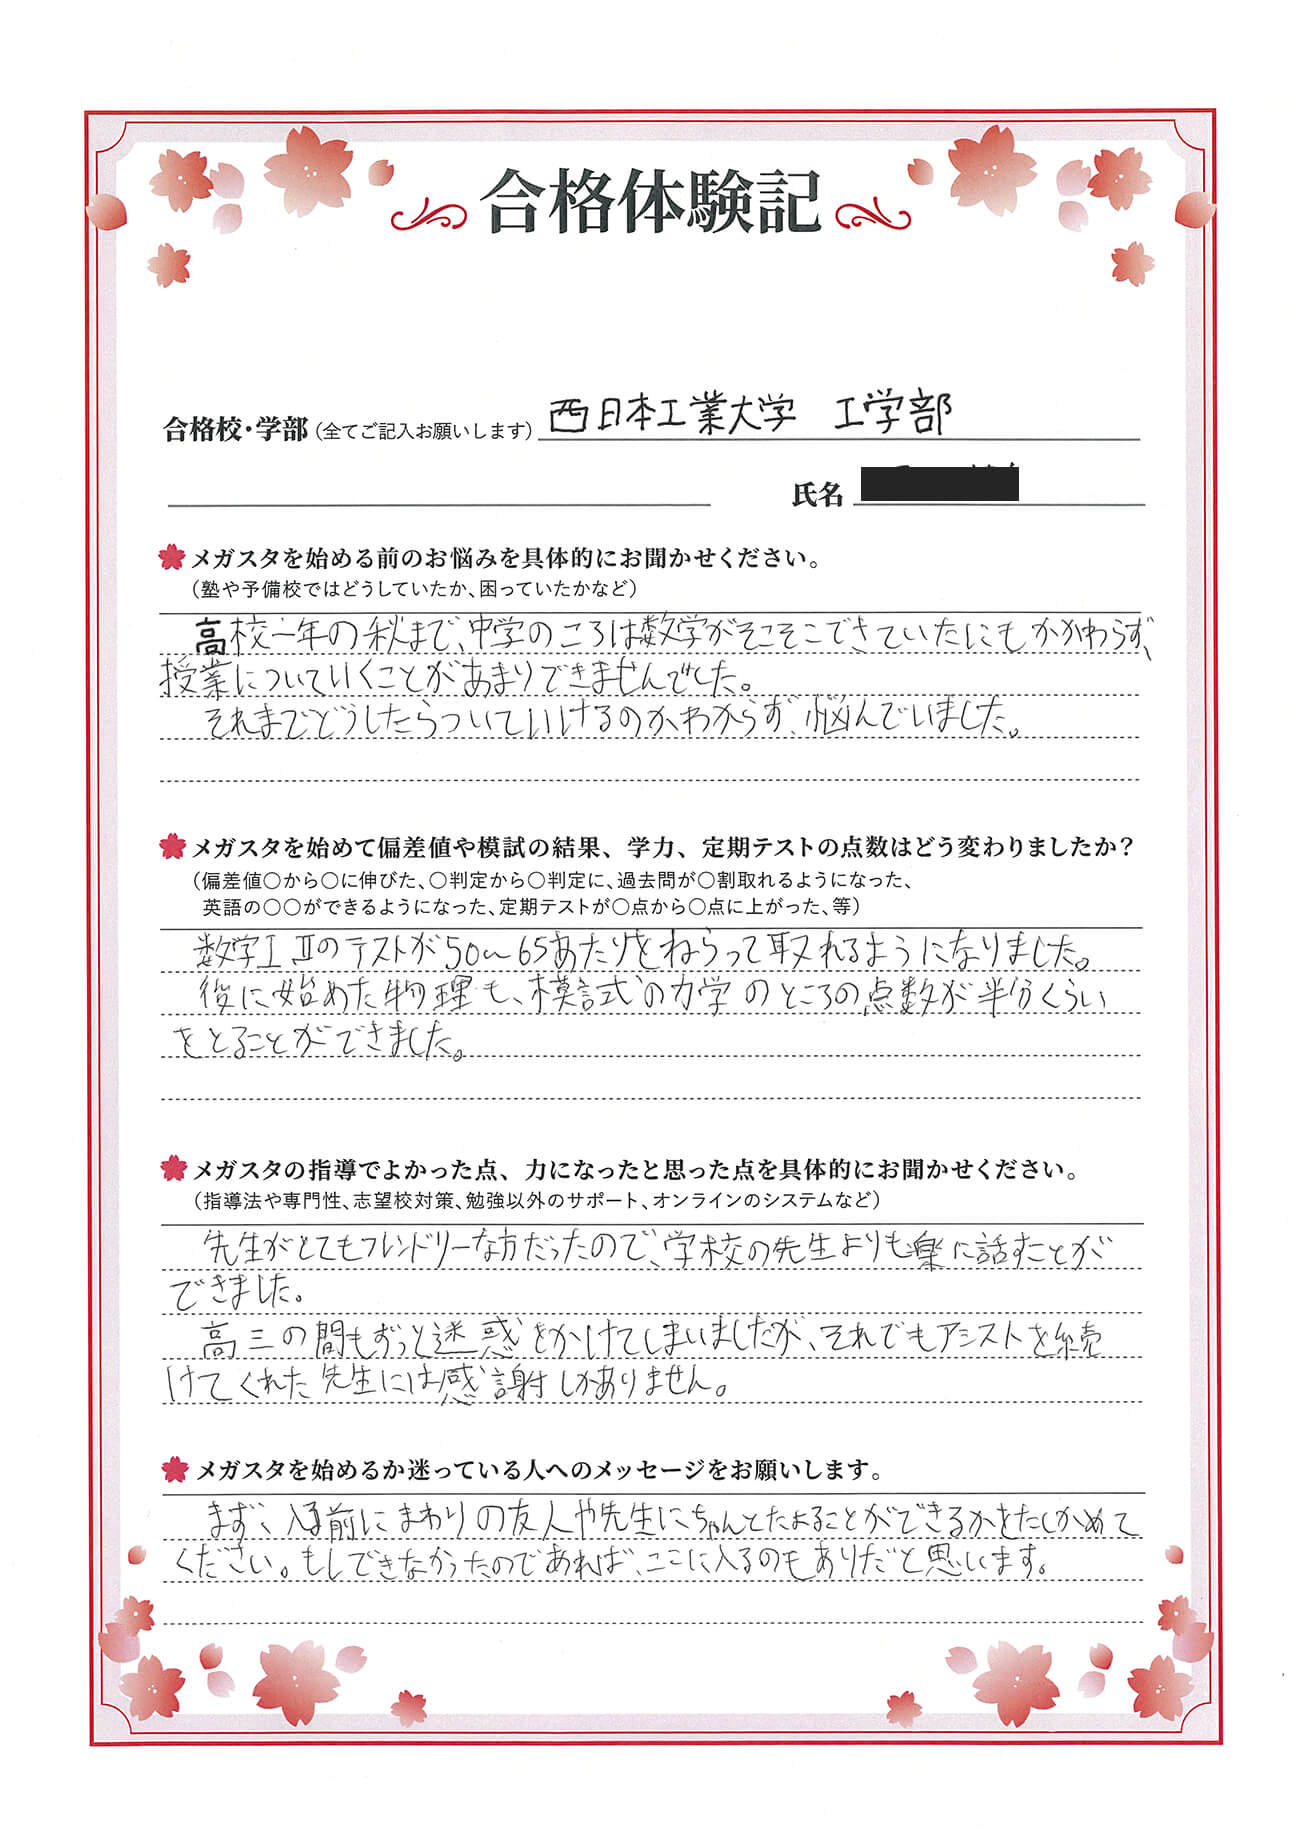 合格体験記
合格校・学部（全てご記入お願いします） 西日本工業大学 工学部
氏名
メガスタを始める前のお悩みを具体的にお聞かせください。
（塾や予備校ではどうしていたか、困っていたかなど）
高校一年の秋まで、中学のころは数学がそこそこできていたにもかかわらず、
授業についていくことがあまりできませんでした。
それまでどうしたらついていけるのかわからず、悩んでいました。
メガスタを始めて偏差値や模試の結果、学力、定期テストの点数はどう変わりましたか？
（偏差値〇から〇に伸びた、〇判定から〇判定に、過去問が〇割取れるようになった、
英語の〇〇ができるようになった、定期テストが〇点から〇点に上がった、等）
数学Ⅰ Ⅱのテストが50〜65あたりをねらって取れるようになりました。
後に始めた物理も、模試の力学のところの点数が半分くらい
をとることができました。
メガスタの指導でよかった点、力になったと思った点を具体的にお聞かせください。
（指導法や専門性、志望校対策、勉強以外のサポート、オンラインのシステムなど）
先生がとてもフレンドリーな方だったので、学校の先生よりも楽に話すことが
できました。
高三の間もずっと迷惑をかけてしまいましたが、それでもアシストを続
けてくれた先生には感謝しかありません。
メガスタを始めるか迷っている人へのメッセージをお願いします。
まず、入る前にまわりの友人や先生にちゃんとたよることができるかをたしかめて
ください。もしできなかったのであれば、ここに入るのもありだと思います。